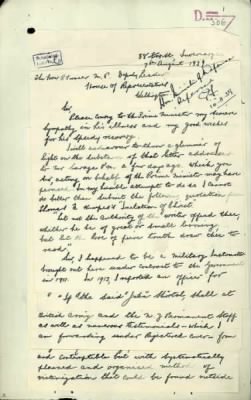 D.
306
7th August 1939
The Hon P Fraser M.P. Deputy Leader
House of Representatives
Wellington
10.8.39
Sir,
Please convey to the Prime Minister my sincere
sympathy in his illness and my good wishes
for his speedy recovery.
I will endeavour to throw a glimmer of
light on the substance of that letter addressed
to Mr Savage for a few days which you
Sir, acting on behalf of the Prime Minister may have
perused. In my humble attempt to do so I cannot
do better than submit the following quotation from
Thomas à Kempis' "Imitation of Christ.
Let not the authority of the writer offend thee,
whether he be of great or small learning,
but let the love of pure truth draw thee to
read."
Sir, I happened to be a Military Instructor
brought out here under contract to the Government
in 1911. In 1912 I imported an officer for
British Army and the N Z Permanent Staff
as well as numerous Testimonials which I
am forwarding under Registered cover from
and contemptible but with systematically
planned and organised method of
victimization that could be found outside